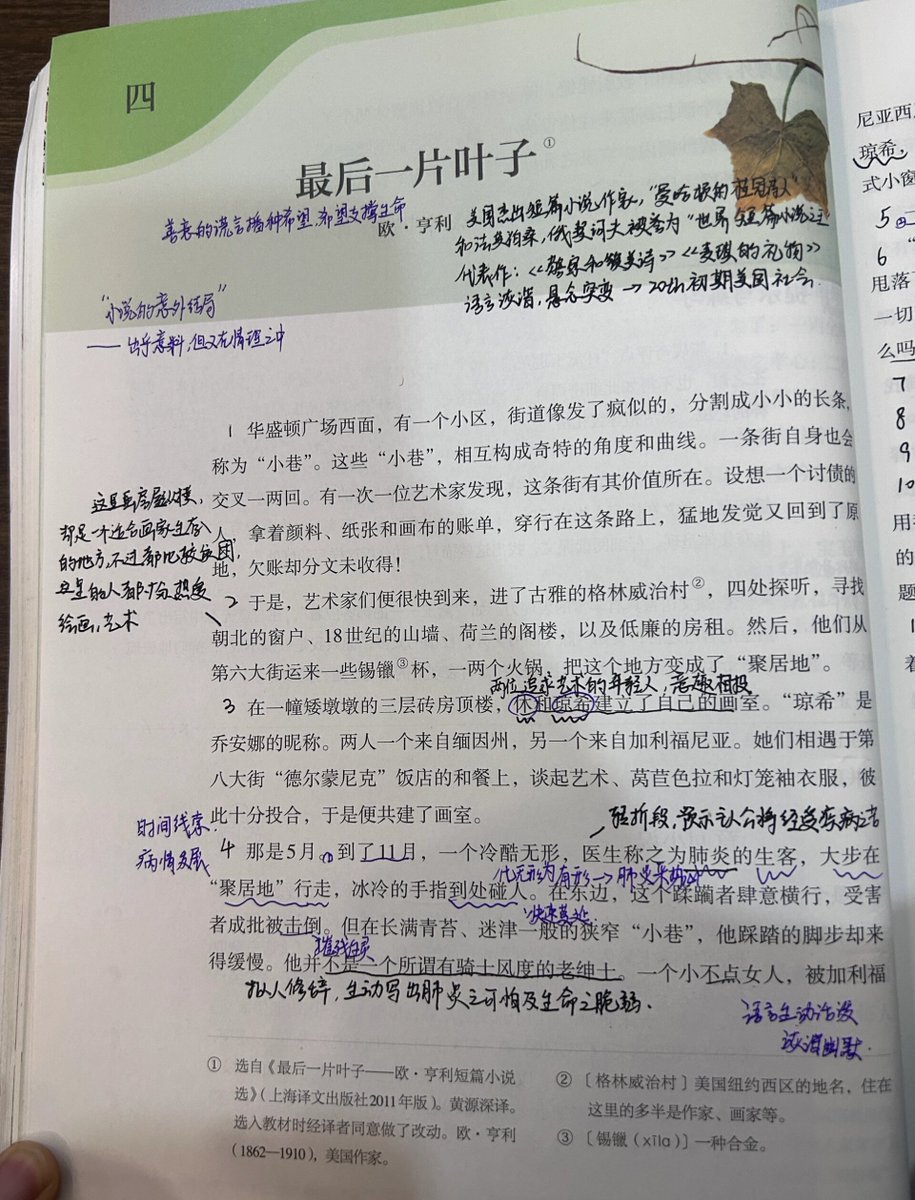 四
最后一片叶子①
善意的谎言播种希望,希望支撑生命
欧·亨利
美国杰出短篇小说作家,"曼哈顿的桂冠诗人"
和法莫泊桑,俄契诃夫被誉为"世界短篇小说之王"
代表作:《警察和赞美诗》《麦琪的礼物》
语言诙谐,悬念突变→20th初期美国社会.
"小说的意外结局"
——出乎意料,但又在情理之中
1 华盛顿广场西面,有一个小区,街道像发了疯似的,分割成小小的长条,
称为“小巷”。这些“小巷”,相互构成奇特的角度和曲线。一条街自身也会
交叉一两回。有一次一位艺术家发现,这条街有其价值所在。设想一个讨债的
人,拿着颜料、纸张和画布的账单,穿行在这条路上,猛地发觉又回到了原
地,欠账却分文未收得!
这里虽房屋
却是一个适合画家生存
的地方,不过都比较贫困,
这里的人都十分热爱
绘画,艺术
2 于是,艺术家们便很快到来,进了古雅的格林威治村②,四处探听,寻找
朝北的窗户、18世纪的山墙、荷兰的阁楼,以及低廉的房租。然后,他们从
第六大街运来一些锡镴③杯,一两个火锅,把这个地方变成了“聚居地”。
两位追求艺术的年轻人,意趣相投
3 在一幢矮墩墩的三层砖房顶楼,休和琼希建立了自己的画室。“琼希”是
乔安娜的昵称。两人一个来自缅因州,另一个来自加利福尼亚。她们相遇于第
八大街“德尔蒙尼克”饭店的和餐上,谈起艺术、莴苣色拉和灯笼袖衣服,彼
此十分投合,于是便共建了画室。
转折段,预示主人公将经受疾病之苦
时间线索
病情发展
4 那是5月。到了11月,一个冷酷无形,医生称之为肺炎的生客,大步在
化无形为有形→肺炎
“聚居地”行走,冰冷的手指到处碰人。在东边,这个蹂躏者肆意横行,受害
快速蔓延
者成批被击倒。但在长满青苔、迷津一般的狭窄“小巷”,他踩踏的脚步却来
摧残生灵
得缓慢。他并不是一个所谓有骑士风度的老绅士。一个小不点女人,被加利福
拟人修辞,生动写出肺炎之可怕及生命之脆弱.
语言生动活泼
诙谐幽默.
① 选自《最后一片叶子——欧·亨利短篇小说
选》(上海译文出版社2011年版)。黄源深译。
选入教材时经译者同意做了改动。欧·亨利
(1862—1910),美国作家。
② 〔格林威治村〕美国纽约西区的地名,住在
这里的多半是作家、画家等。
③ 〔锡镴(xīla)〕一种合金。
尼亚西
琼希,
式小窗
5
6 “
甩落
一切
么吗
7
8
9
10
用
的
题
着